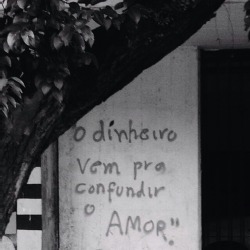 O dinheiro
vem pra
confundir
o
AMOR."